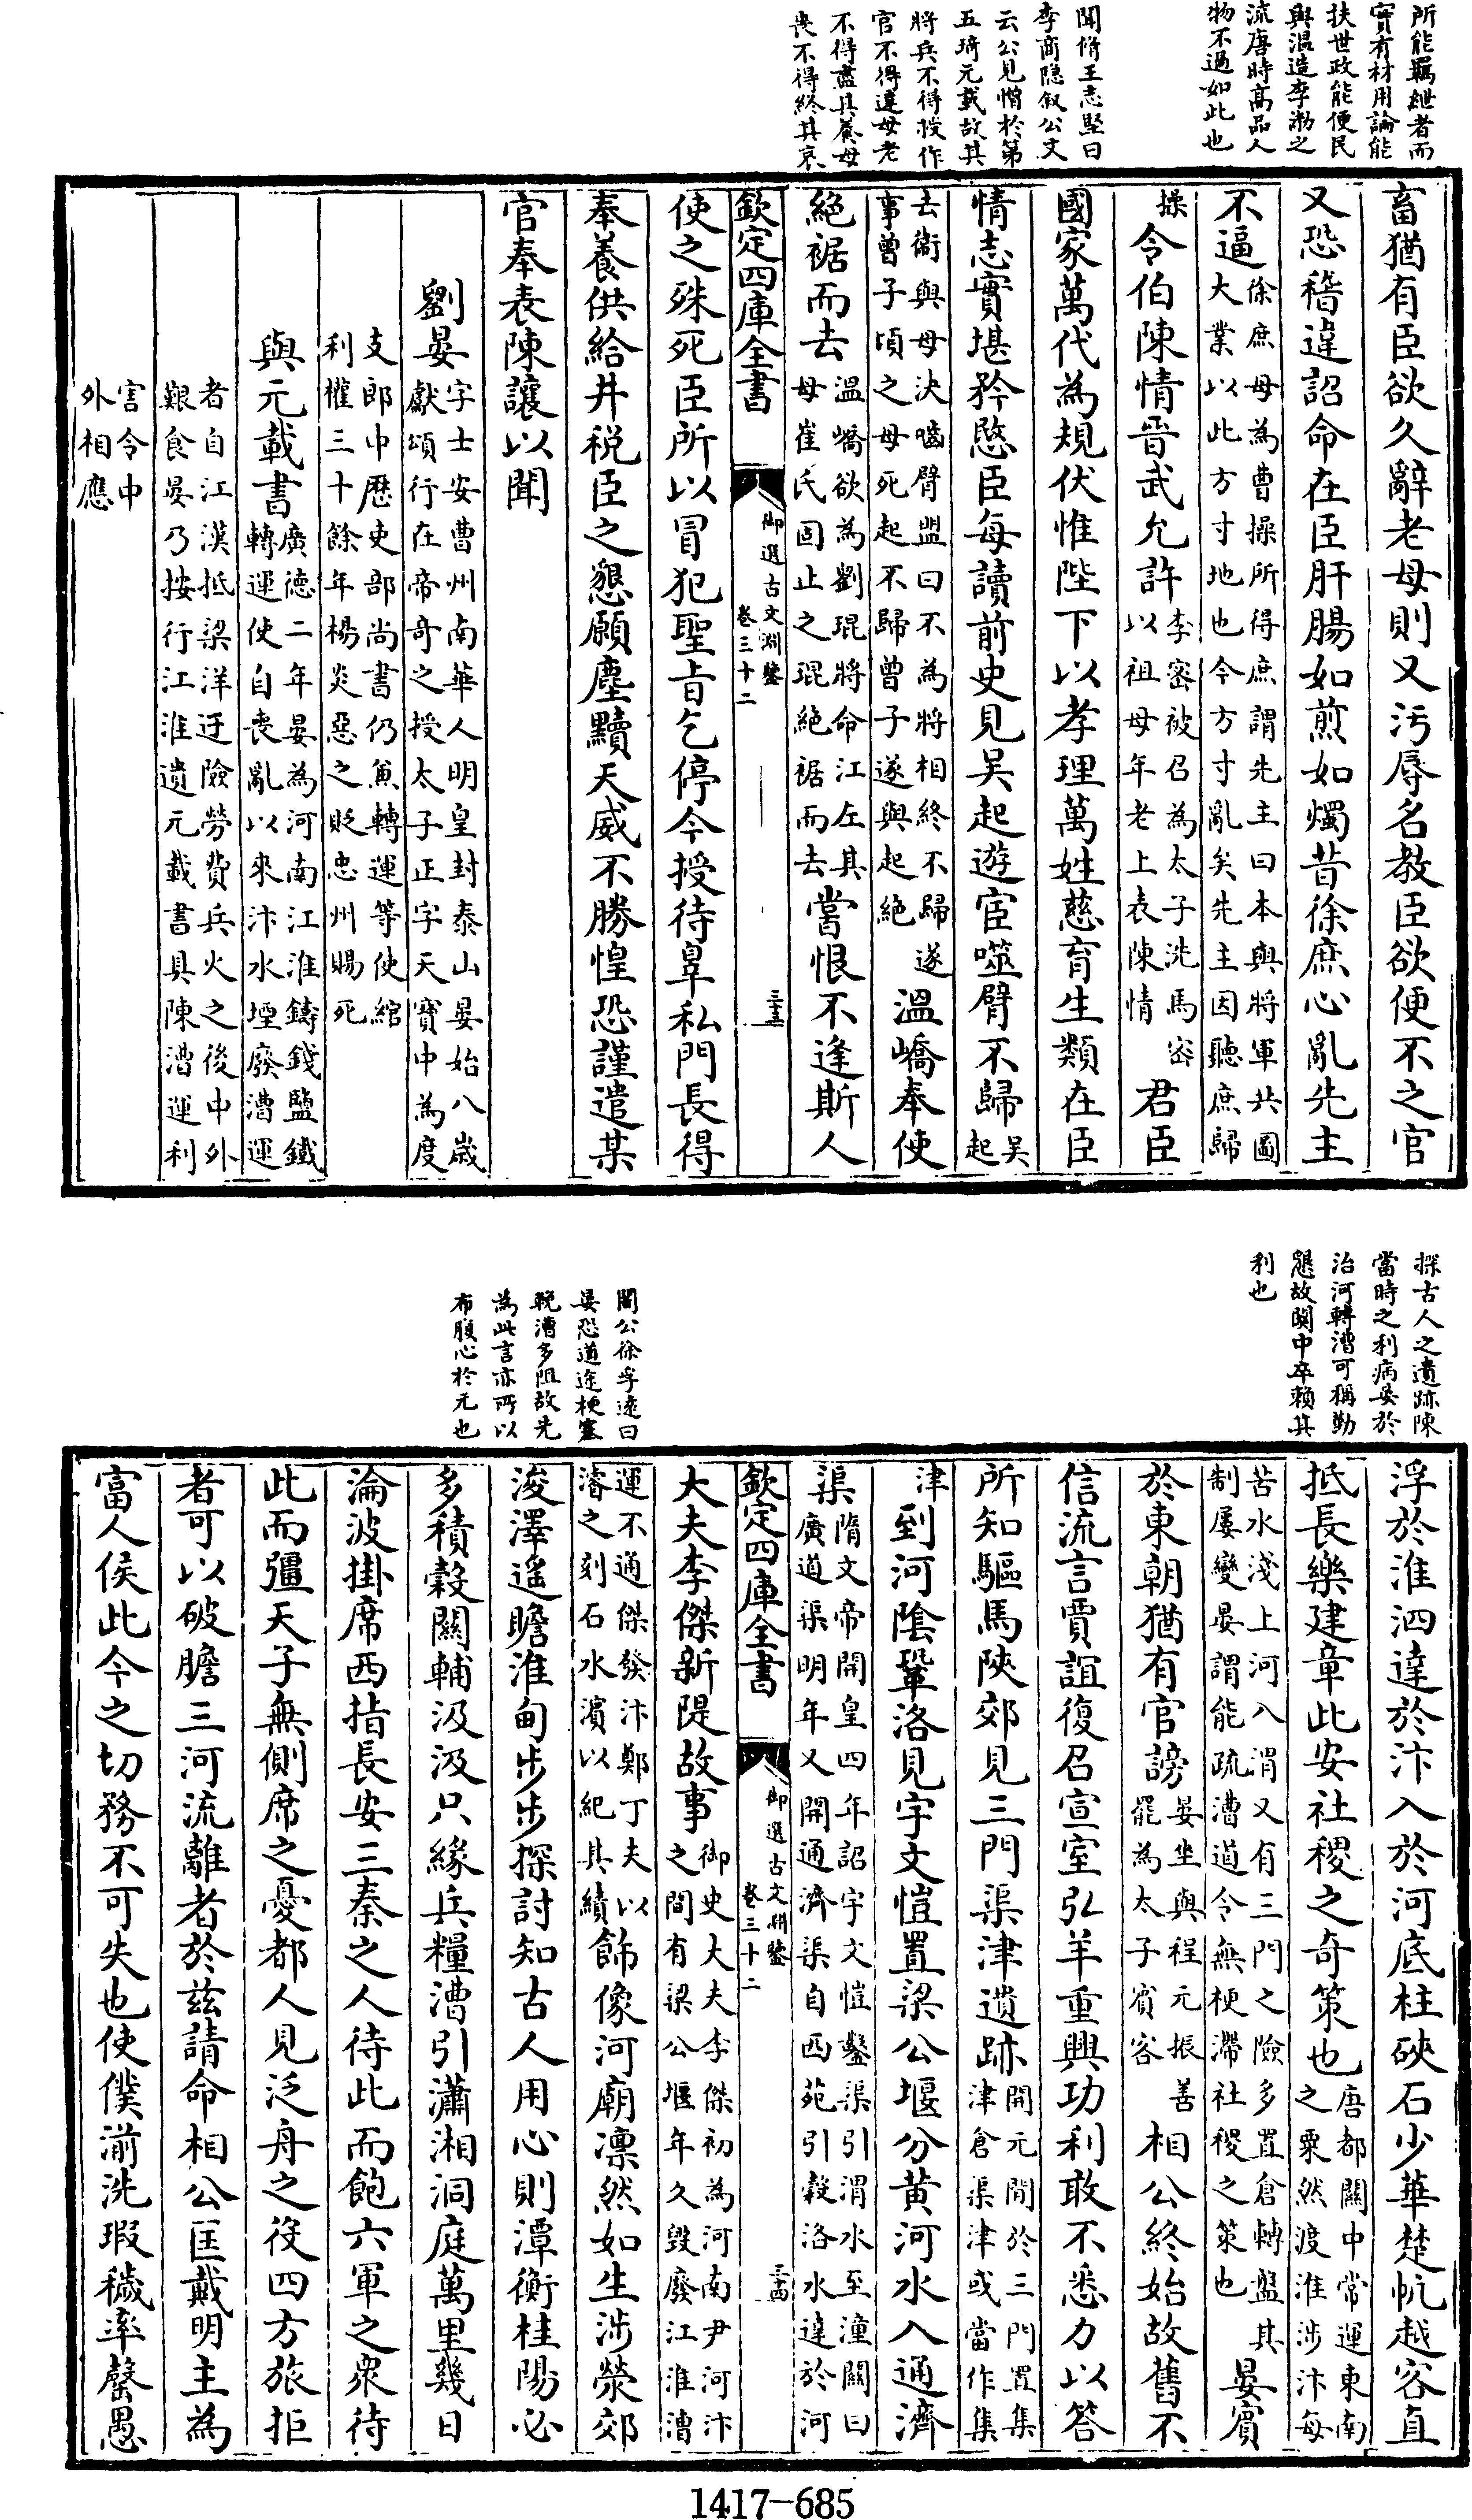 所能羈紲者而
實有材用論能
扶世政能便民
與温造李渤之
流唐時高品人
物不過如此也
聞脩王志堅曰
李商隐叙公文
云公見憎於第
五琦元載故其
將兵不得授作
官不得達母老
不得盡其養母
喪不得終其哀
畜猶有臣欲久辭老母則又污辱名教臣欲便不之官
又恐稽違詔命在臣肝腸如煎如燭昔徐庶心亂先主
不逼徐庶母為曹操所得庶謂先主曰本與將軍共圖
大業以此方寸地也今方寸亂矣先主因聽庶歸
操令伯陳情晉武允許李密被召為太子洗馬密
以祖母年老上表陳情君臣
國家萬代為規伏惟陛下以孝理萬姓慈育生類在臣
情志實堪矜愍臣每讀前史見吳起遊宦噬臂不歸吳
起
去衞與母決嚙臂盟曰不為將相終不歸遂
事曾子頃之母死起不歸曾子遂與起絶溫嶠奉使
絶裾而去温嶠欲為劉琨將命江左其
母崔氏固止之琨絶裾而去嘗恨不逢斯人
欽定四庫全書
御選古文淵鑒
卷三十二
三十三
使之殊死臣所以冒犯聖旨乞停今授待辠私門長得
奉養供給井税臣之懇願塵黷天威不勝惶恐謹遣某
官奉表陳讓以聞
劉晏字士安曹州南華人明皇封泰山晏始八歲
獻頌行在帝奇之授太子正字天寶中為度
支郎中歷吏部尚書仍兼轉運等使綰
利權三十餘年楊炎惡之貶忠州賜死
與元載書廣德二年晏為河南江淮鑄錢鹽鐵
轉運使自喪亂以來汴水堙廢漕運
者自江漢抵梁洋迂險勞費兵火之後中外
艱食晏乃按行江淮遺元載書具陳漕運利
害令中
外相應
探古人之遺跡陳
當時之利病晏於
治河轉漕可稱勤
懇故關中卒賴其
利也
閣公徐孚遠曰
晏恐道途梗塞
輓漕多阻故先
為此言亦所以
布腹心於元也
浮於淮泗達於汴入於河底柱硤石少華楚帆越客直
抵長樂建章此安社稷之奇策也唐都關中常運東南
之粟然渡淮涉汴每
苦水淺上河入渭又有三門之險多置倉轉盤其
制屢變晏謂能疏漕道令無梗滯社稷之策也晏賓
於東朝猶有官謗晏坐與程元振善
罷為太子賓客相公終始故舊不
信流言賈誼復召宣室弘羊重興功利敢不悉力以答
所知驅馬陝郊見三門渠津遺跡開元閒於三門置集
津倉渠津或當作集
津到河陰鞏洛見宇文愷置梁公堰分黄河水入通濟
渠隋文帝開皇四年詔宇文愷鑿渠引渭水至潼關曰
廣道渠明年又開通濟渠自西苑引穀洛水達於河
欽定四庫全書
御選古文淵鑒
卷三十二
三十四
大夫李傑新隄故事御史大夫李傑初為河南尹河汴
之間有梁公堰年久毀廢江淮漕
運不通傑發汴鄭丁夫以
濬之刻石水濱以紀其績飾像河廟凛然如生涉滎郊
浚澤遥瞻淮甸步步探討知古人用心則潭衡桂陽必
多積穀關輔汲汲只緣兵糧漕引瀟湘洞庭萬里幾日
淪波掛席西指長安三秦之人待此而飽六軍之衆待
此而彊天子無側席之憂都人見泛舟之役四方旅拒
者可以破膽三河流離者於兹請命相公匡戴明主為
富人侯此今之切務不可失也使僕湔洗瑕穢率罄愚
1417-685